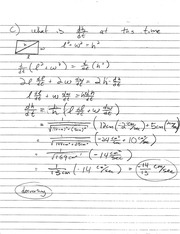 c) what is dh/dt at this time
l² + w² = h²
d/dt (l² + w²) = d/dt (h²)
2l dl/dt + 2w dw/dt = 2h dh/dt
l dl/dt + w dw/dt = h dh/dt
dh/dt = 1/h (l dl/dt + w dw/dt)
(12cm (-2 cm/sec) + 5cm
(-24 cm²/sec + 10 cm²/sec)
= 1/√169cm² (-14 cm²/sec)
= 1/13cm (-14 cm²/sec) = -14 cm/sec
13
decreasing